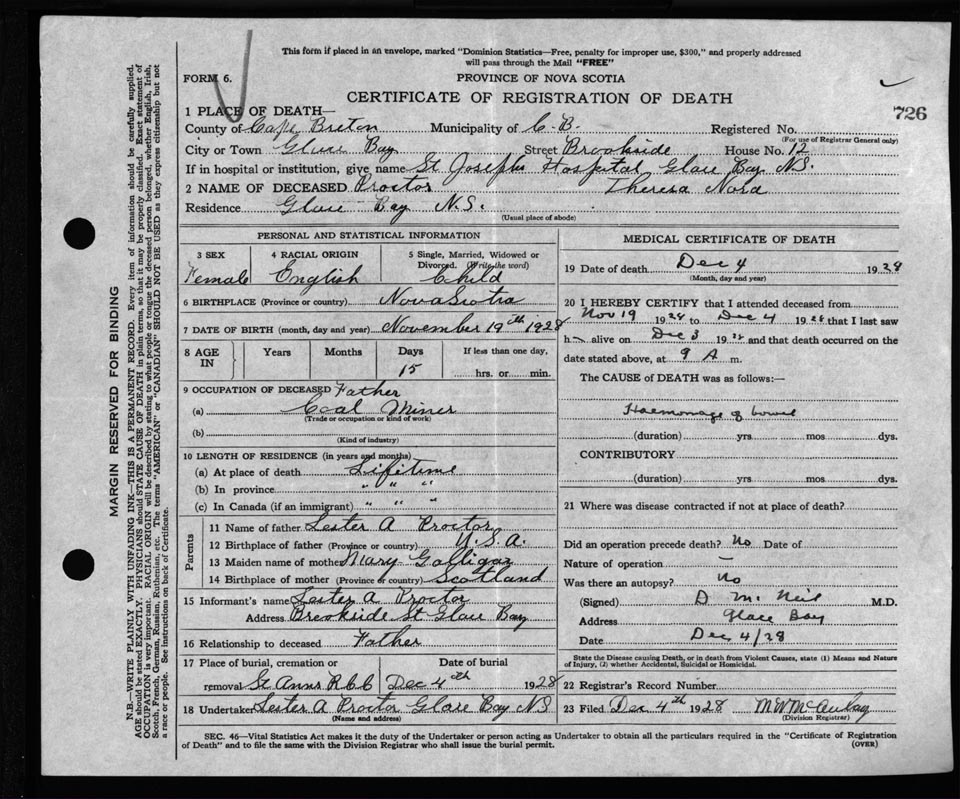 This form if placed in an envelope, marked "Dominion Statistics—Free, penalty for improper use, $300," and properly addressed
will pass through the Mail "FREE"
FORM 6.
PROVINCE OF NOVA SCOTIA
CERTIFICATE OF REGISTRATION OF DEATH
726
1 PLACE OF DEATH—
County of Cape Breton Municipality of C.B. Registered No.
(For use of Registrar General only)
City or Town Glace Bay Street Brookside House No. 12
If in hospital or institution, give name St Josephs Hospital Glace Bay N.S.
2 NAME OF DECEASED Proctor Theresa Nora
Residence Glace Bay N.S.
(Usual place of abode)
PERSONAL AND STATISTICAL INFORMATION
3 SEX 4 RACIAL ORIGIN 5 Single, Married, Widowed or
Divorced. (Write the word)
Female English Child
6 BIRTHPLACE (Province or country) Nova Scotia
7 DATE OF BIRTH (month, day and year) November 19th 1928
8 AGE IN Years Months Days If less than one day,
15 hrs. or min.
9 OCCUPATION OF DECEASED Father
(a) Coal Miner
(Trade or occupation or kind of work)
(b)
(Kind of industry)
10 LENGTH OF RESIDENCE (in years and months)
(a) At place of death Lifetime
(b) In province " " "
(c) In Canada (if an immigrant) " " "
Parents
11 Name of father Lester A Proctor
12 Birthplace of father (Province or country) U.S.A.
13 Maiden name of mother Mary Galligan
14 Birthplace of mother (Province or country) Scotland
15 Informant's name Lester A Proctor
Address Brookside St Glace Bay
16 Relationship to deceased Father
17 Place of burial, cremation or Date of burial
removal St Anns R.C.C Dec 4th 1928
18 Undertaker Lester A Proctor Glace Bay NS
(Name and address)
MEDICAL CERTIFICATE OF DEATH
19 Date of death Dec 4 1928
(Month, day and year)
20 I HEREBY CERTIFY that I attended deceased from
Nov 19 1928 to Dec 4 1928 that I last saw
h alive on Dec 3 1928 and that death occurred on the
date stated above, at 9 A m.
The CAUSE of DEATH was as follows:—
Haemorrage of bowel
(duration) yrs. mos dys.
CONTRIBUTORY
(duration) yrs. mos dys.
21 Where was disease contracted if not at place of death?
Did an operation precede death? No Date of
Nature of operation —
Was there an autopsy? no
(Signed) D McNeil M.D.
Address Glace Bay
Date Dec 4/28
State the Disease causing Death, or in death from Violent Causes, state (1) Means and Nature
of Injury, (2) whether Accidental, Suicidal or Homicidal.
22 Registrar's Record Number
23 Filed Dec 4th 1928 M W McAulay
(Division Registrar)
SEC. 46—Vital Statistics Act makes it the duty of the Undertaker or person acting as Undertaker to obtain all the particulars required in the "Certificate of Registration
of Death" and to file the same with the Division Registrar who shall issue the burial permit.
(OVER)
MARGIN RESERVED FOR BINDING
N.B.—WRITE PLAINLY WITH UNFADING INK—THIS IS A PERMANENT RECORD. Every item of information should be carefully supplied.
AGE should be stated EXACTLY. PHYSICIANS should STATE CAUSE OF DEATH in plain terms, so that it may be properly classified. Exact statement of
OCCUPATION is very important. RACIAL ORIGIN will be described by stating to what people or tongue the deceased person belonged, whether English, Irish,
Scotch, French, German, Russian, Ruthenian, etc. The terms "AMERICAN" or "CANADIAN" SHOULD NOT BE USED as they express citizenship but not
a race or people. See instructions on back of Certificate.